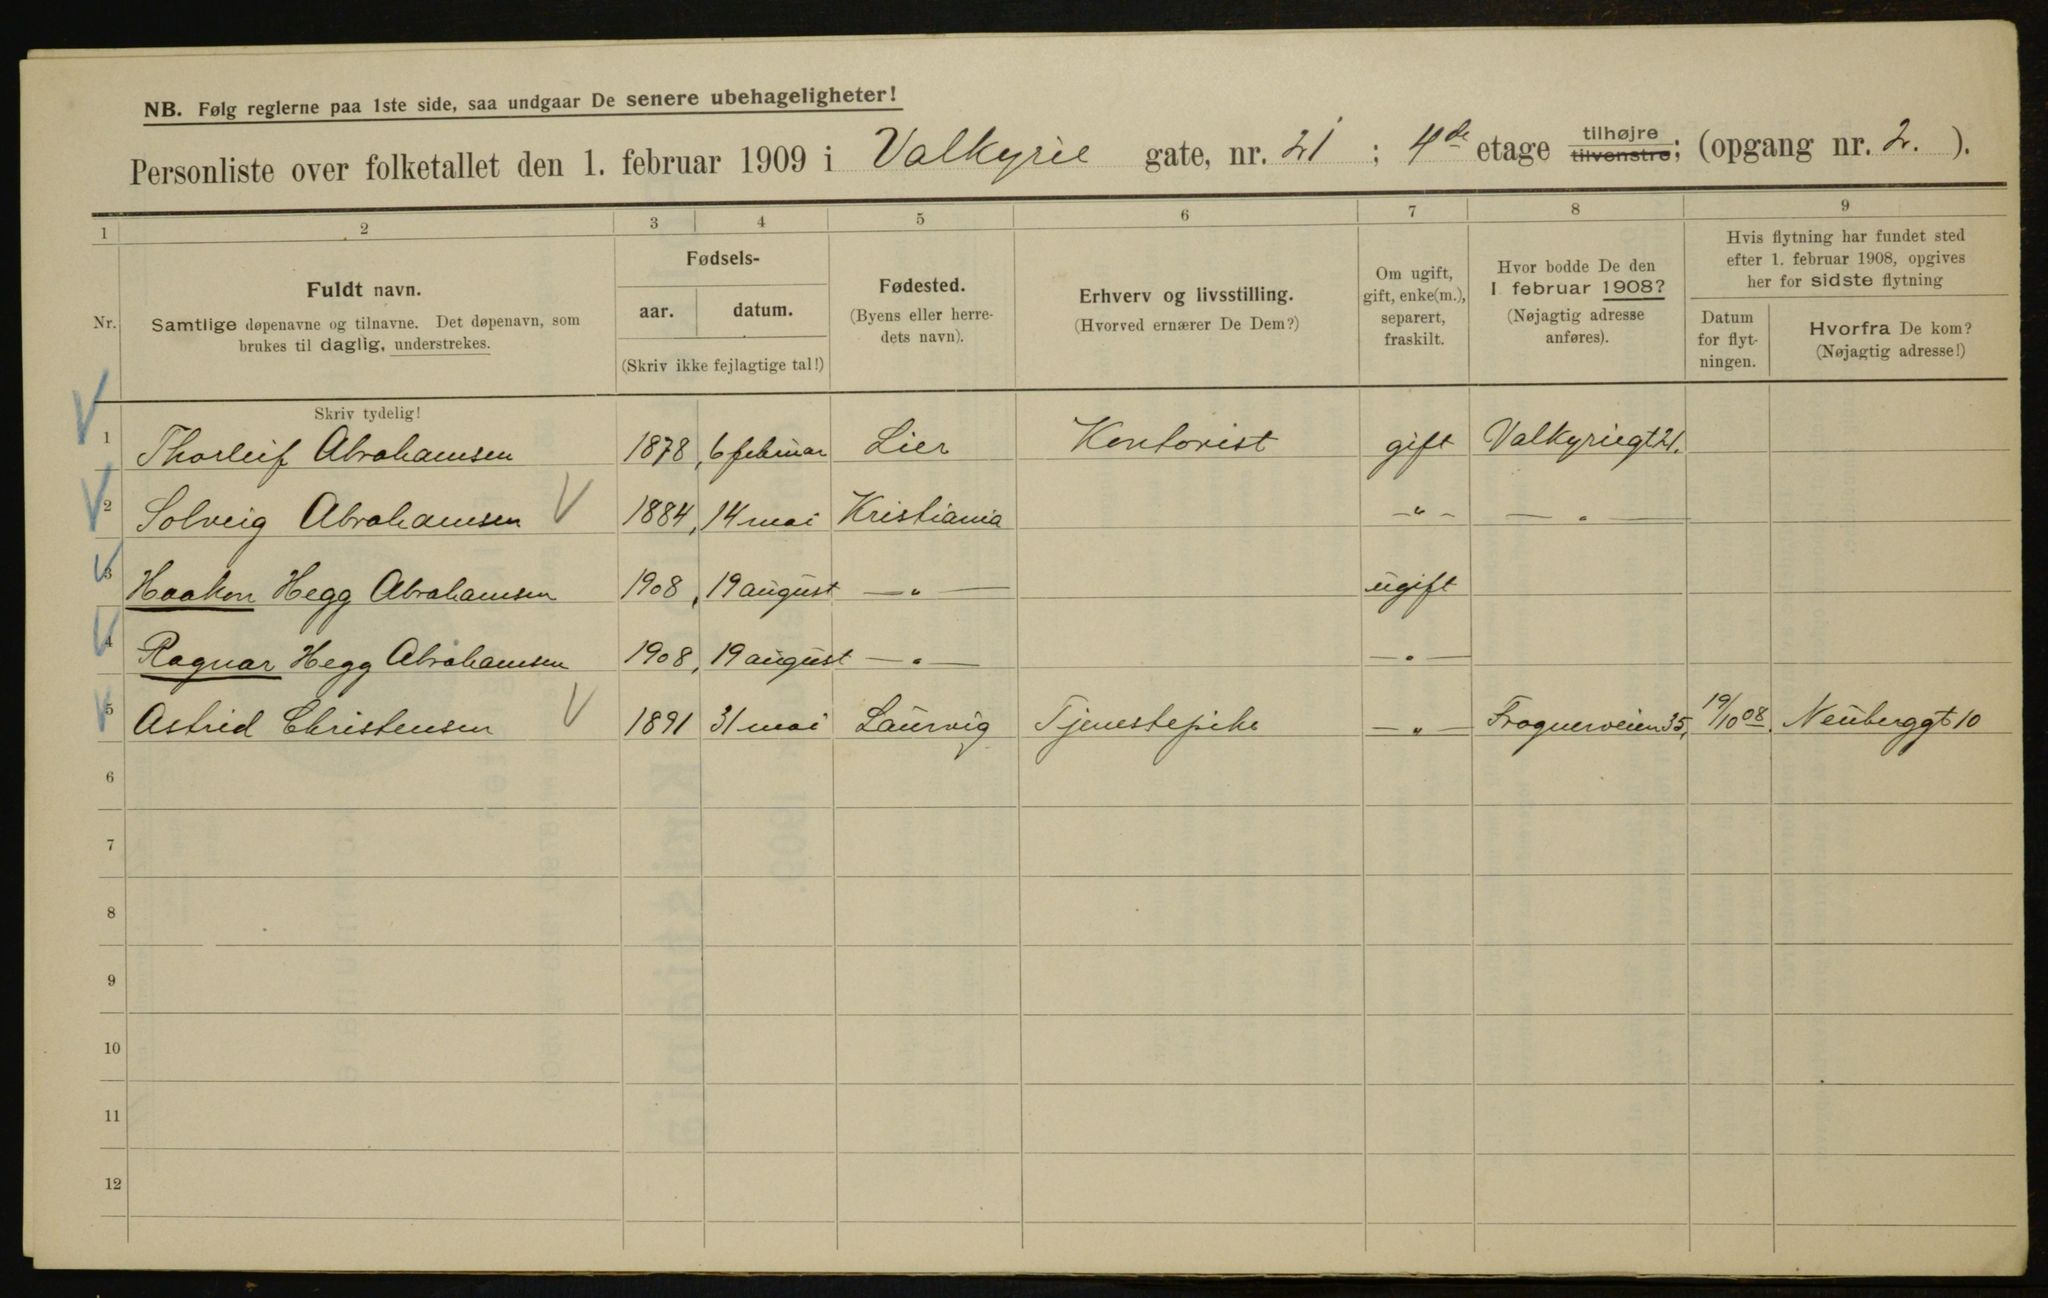 NB. Følg reglerne paa 1ste side, saa undgaar De senere ubehageligheter!
Personliste over folketallet den 1. februar 1909 i Valkyrie gate, nr. 21 ; 4de etage tilhøjre tilvenstre; (opgang nr. 2. ).
1 2 3 4 5 6 7 8 9
Nr.
Fuldt navn.
Samtlige døpenavne og tilnavne. Det døpenavn, som
brukes til daglig, understrekes.
Fødsels-
aar. datum.
(Skriv ikke fejlagtige tal!)
Fødested.
(Byens eller herre-
dets navn).
Erhverv og livsstilling.
(Hvorved ernærer De Dem?)
Om ugift,
gift, enke(m.),
separert,
fraskilt.
Hvor bodde De den
1 februar 1908?
(Nøjagtig adresse
anføres).
Hvis flytning har fundet sted
efter 1. februar 1908, opgives
her for sidste flytning
Datum
for flyt-
ningen.
Hvorfra De kom?
(Nøjagtig adresse!)
Skriv tydelig!
1 Thorleif Abrahamsen 1878, 6 februar Lier Kontorist gift Valkyriegt 21.
2 Solveig Abrahamsen 1884, 14 mai Kristiania —"— —"—
3 Haakon Hegg Abrahamsen 1908, 19 august —"— ugift
4 Ragnar Hegg Abrahamsen 1908, 19 august —"— —"—
5 Astrid Christensen 1891 31 mai Laurvig Tjenestepike —"— Frognerveien 35, 19/10 08. Neuberggt 10
6
7
8
9
10
11
12